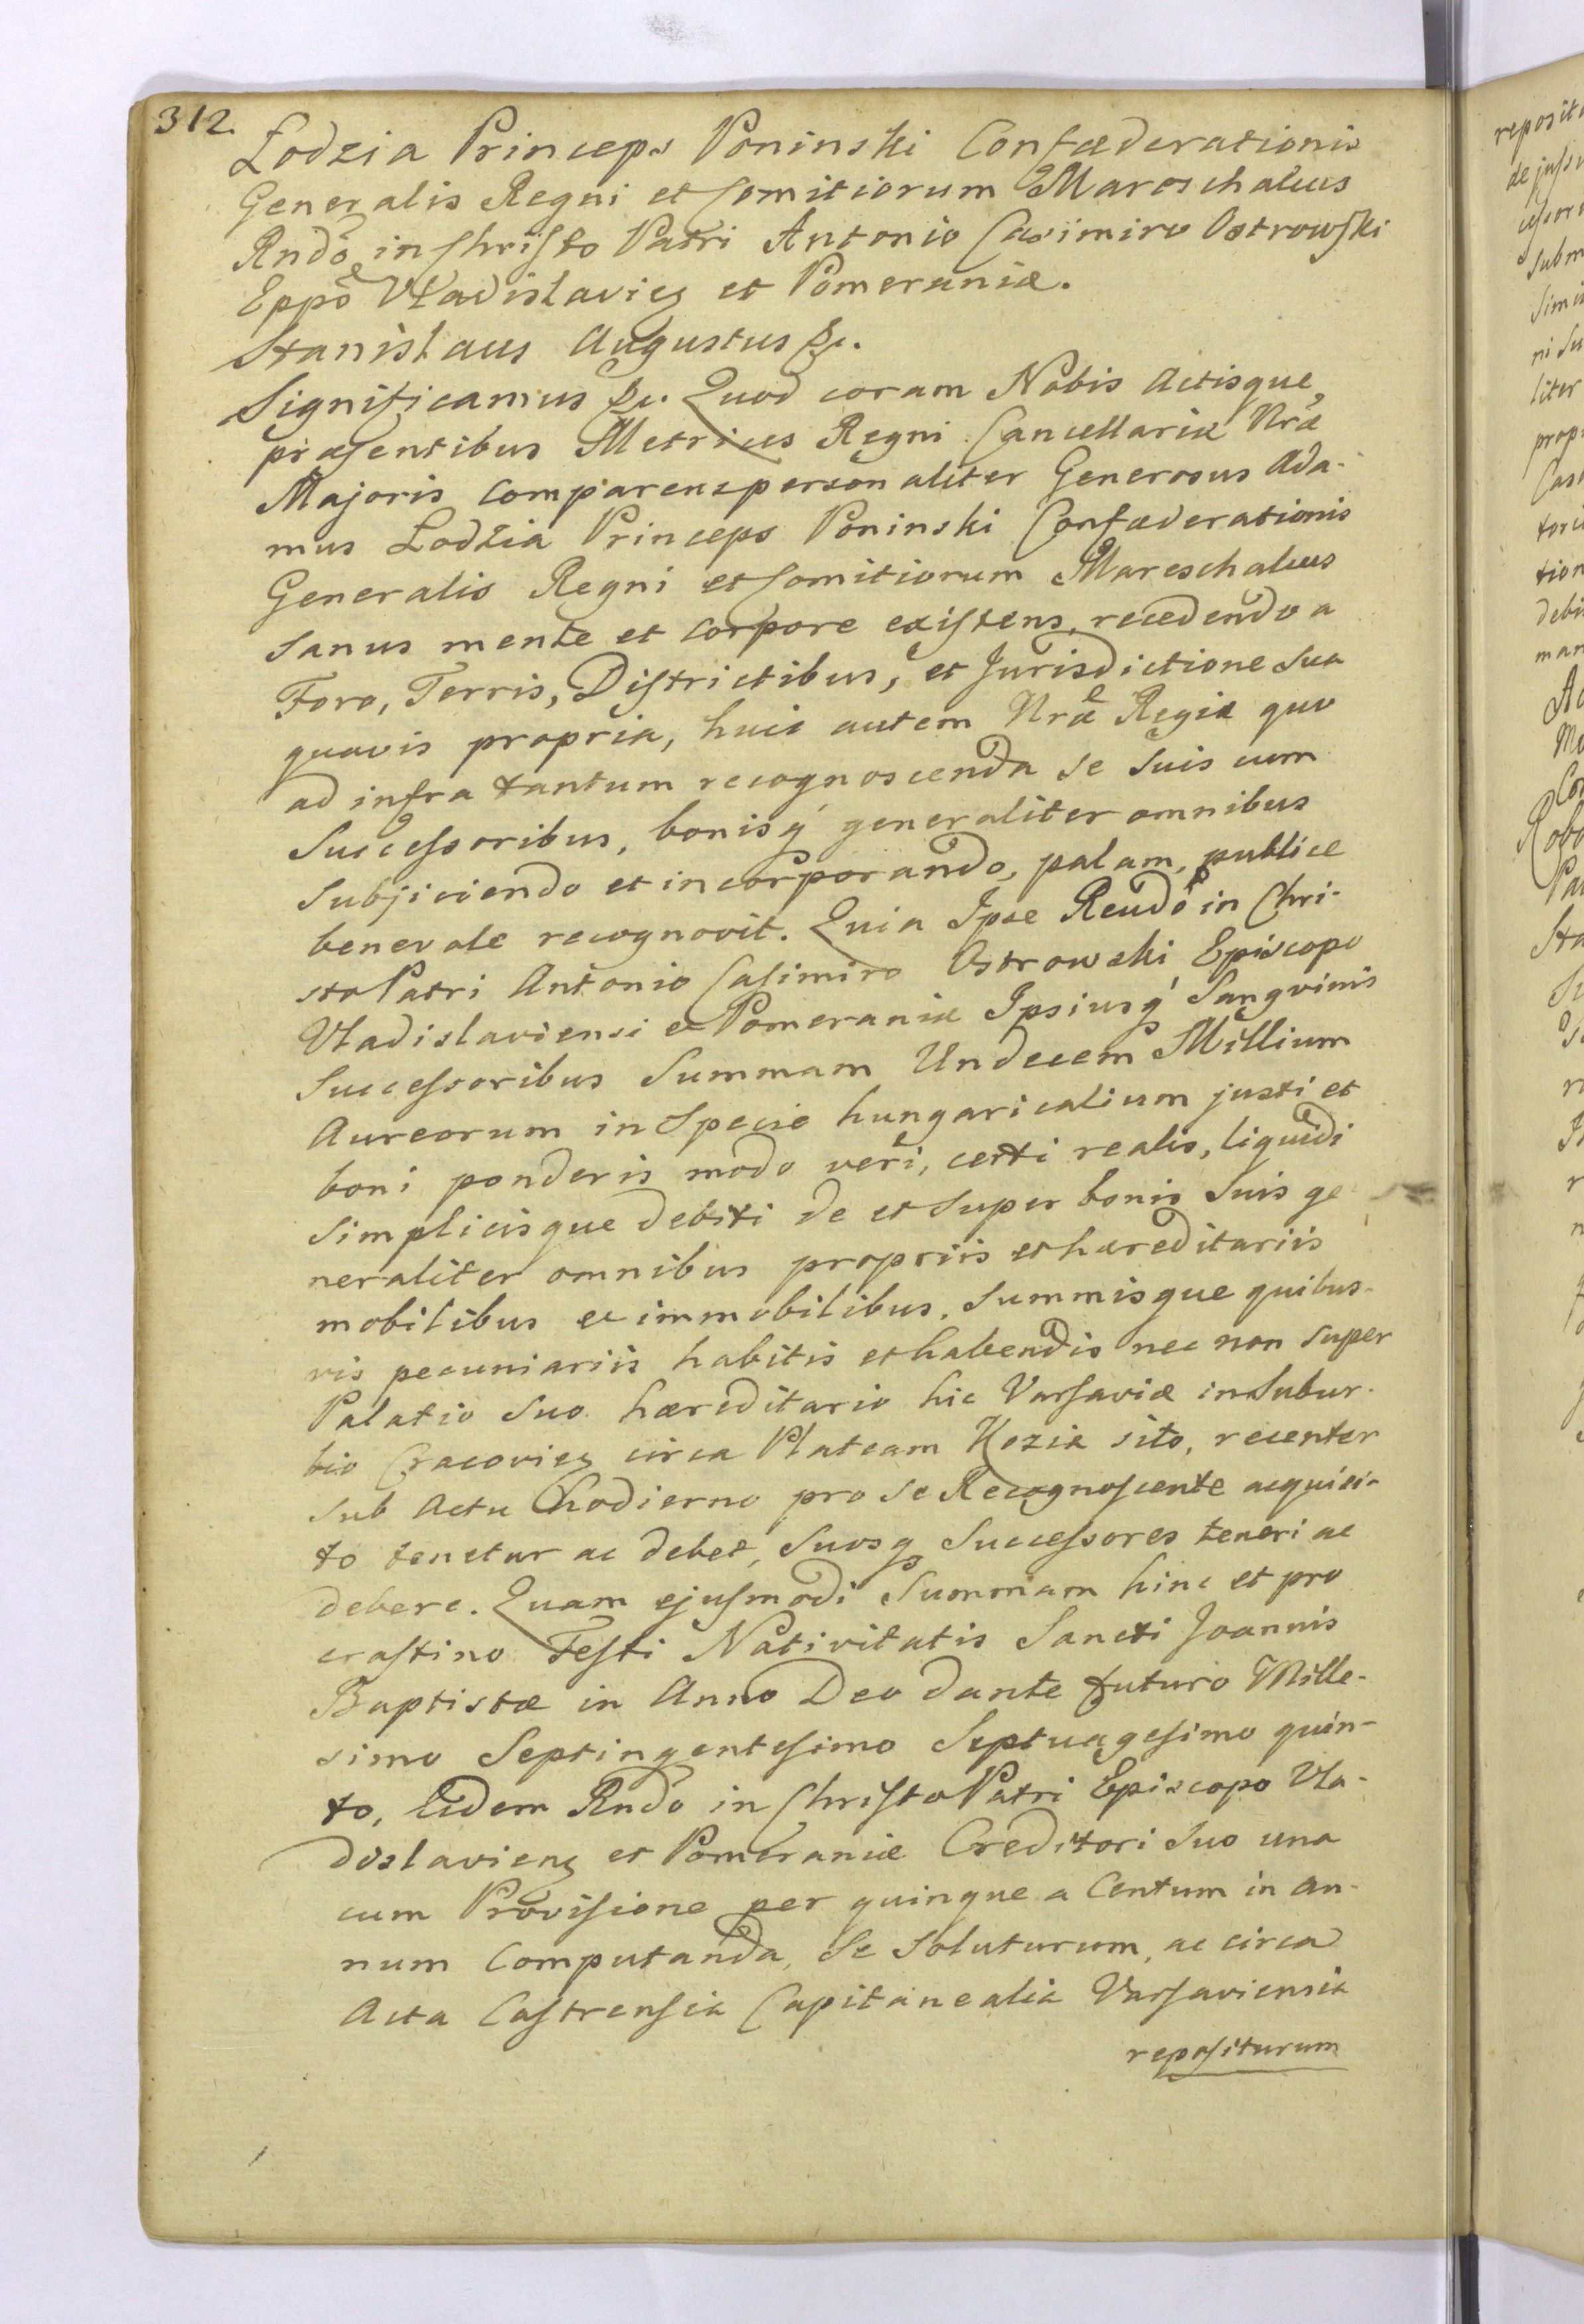 312.
Lodzia Princeps Poninski Confæderationis
Generalis Regni et Comitiorum Mareschalcus
Rndo in Christo Patri Antonio Casimiro Ostrowski
Eppo Vladislavien et Pomeraniæ.
Stanislaus Augustus &c.
Significamus &c. Quod coram Nobis Actisque,
præsentibus Metrices Regni Cancellariæ Nræ
Majoris comparens personaliter Generosus Ada-
mus Lodzia Princeps Poninski Confæderationis
Generalis Regni et Comitiorum Mareschalcus
sanus mente et corpore existens, recedendo a
Foro, Terris, Districtibus, et Jurisdictione sua
quavis propria, huic autem Nræ Regiæ quo
ad infra tantum recognoscenda se suis cum
Successoribus, bonisq generaliter omnibus
subjiciendo et incorporando, palam, publice
benevole recognovit. Quia Ipse Rendo in Chri-
sto Patri Antonio Casimiro Ostrowski Episcopo
Vladislaviensi et Pomeraniæ Ipsiusq Sangvinis
Successoribus Summam Undecem Millium
Aureorum in Specie hungaricalium justi et
boni ponderis modo veri, certi realis, liquidi
simplicisque debiti de et super bonis suis ge
neraliter omnibus propriis et hæreditariis
mobilibus et immobilibus, Summisque quibus-
vis pecuniariis habitis et habendis nec non super
Palatio suo hæreditario hic Varsaviæ in Subur-
bio Cracovien circa Plateam Kozia sito, recenter
sub Actu hodierno pro se Recognoscente acquisi-
to tenetur ac debet, Suosq Successores teneri ac
debere. Quam ejusmodi Summam hinc et pro
crastino Festi Nativitatis Sancti Joannis
Baptistæ in Anno Deo dante futuro Mille-
simo Septingentesimo Septuagesimo quin-
to, Eidem Rndo in Christo Patri Episcopo Vla-
dislavien et Pomeraniæ Creditori suo una
cum Provisione per quinque a Centum in an-
num computanda, se soluturum, ac circa
Acta Castrensia Capitanealia Varsaviensia
repositurum